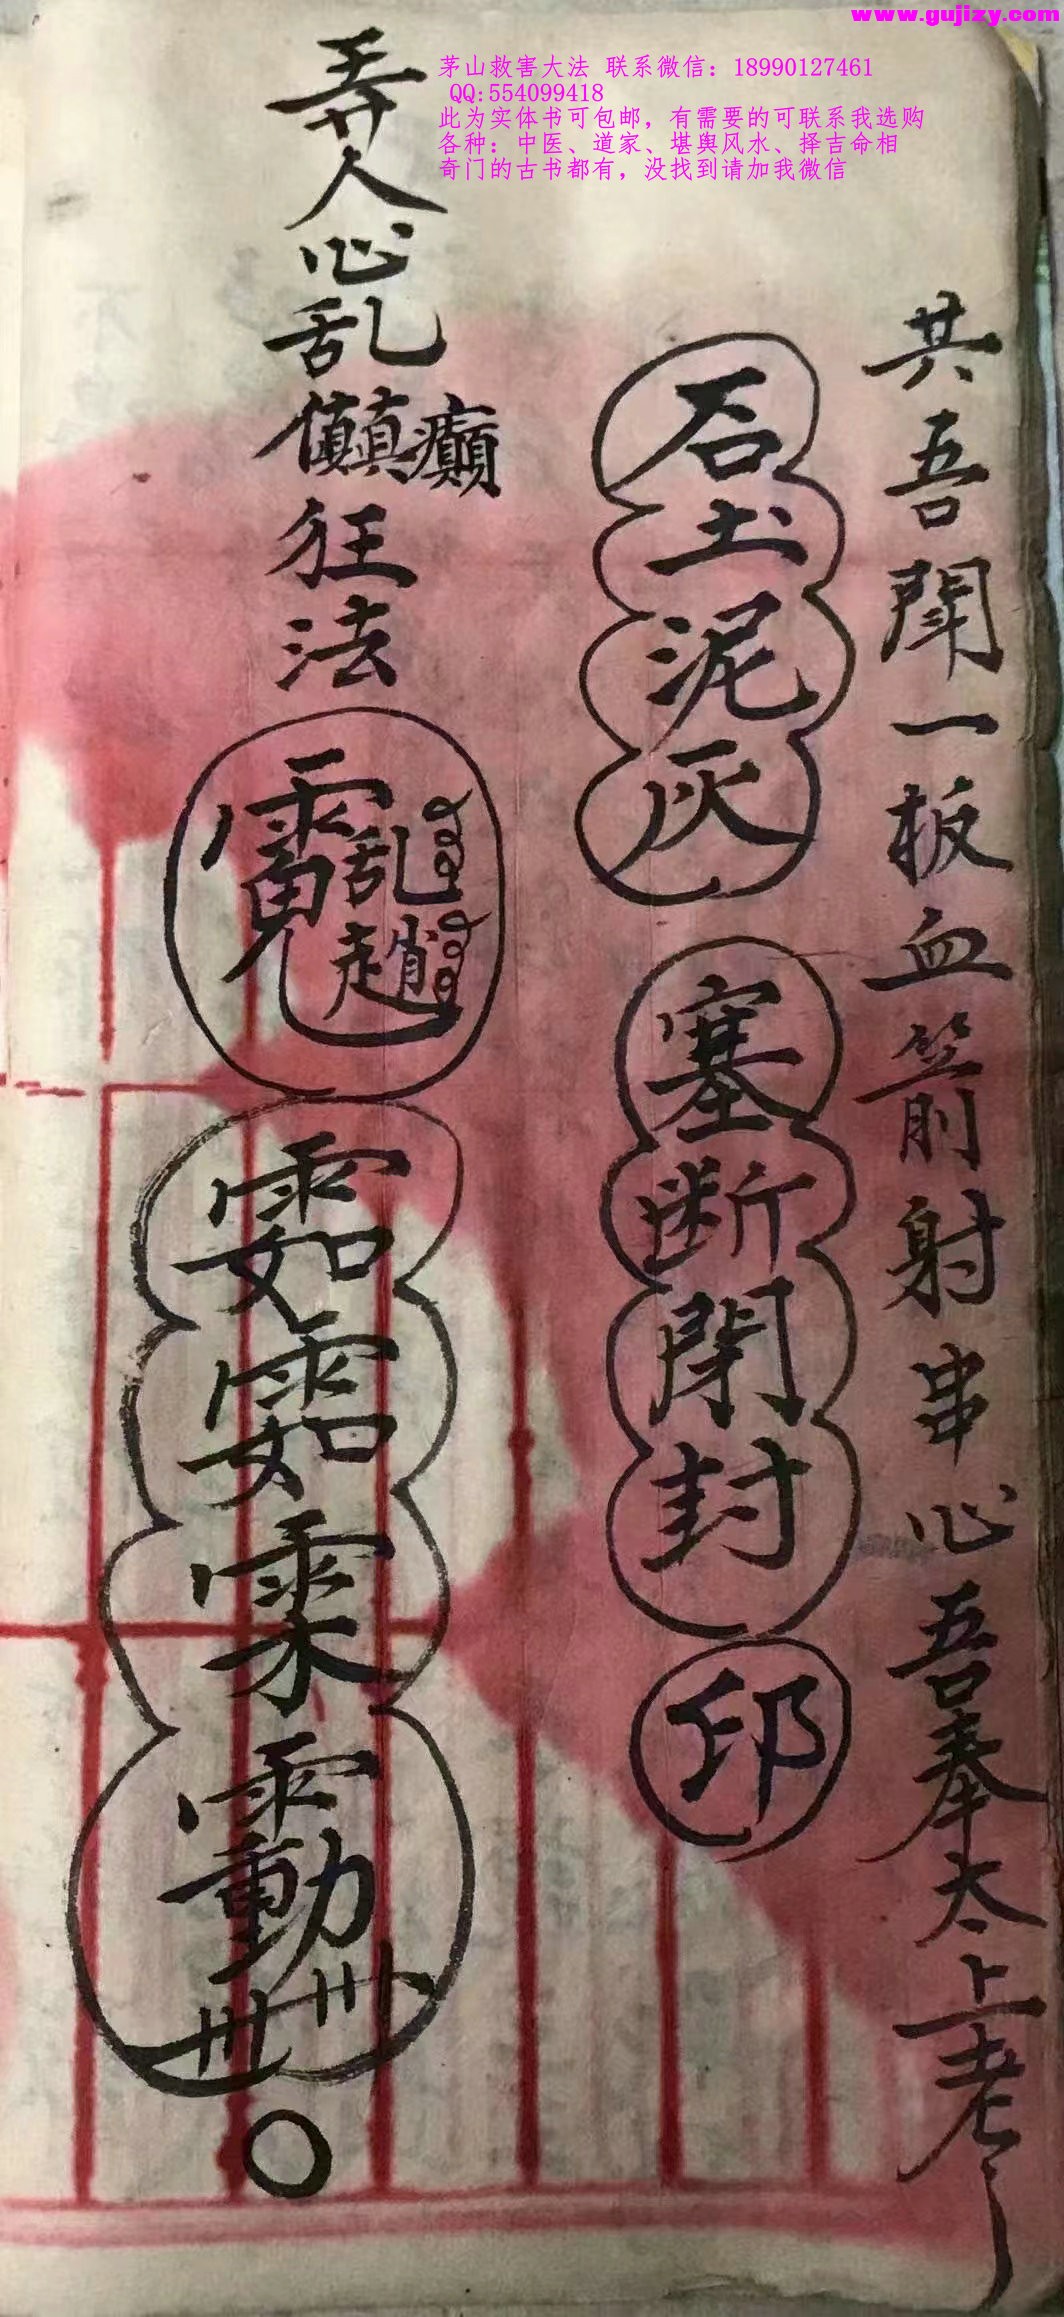 www.gujizy.com
茅山救害大法 联系微信：18990127461
QQ:554099418
此为实体书可包邮，有需要的可联系我选购
各种：中医、道家、堪舆风水、择吉命相
奇门的古书都有，没找到请加我微信
共吾閗一板血箭射串心吾奉太上老
石土泥灰
塞断閉封
印
弄人心乱癲狂法
乱趙
動